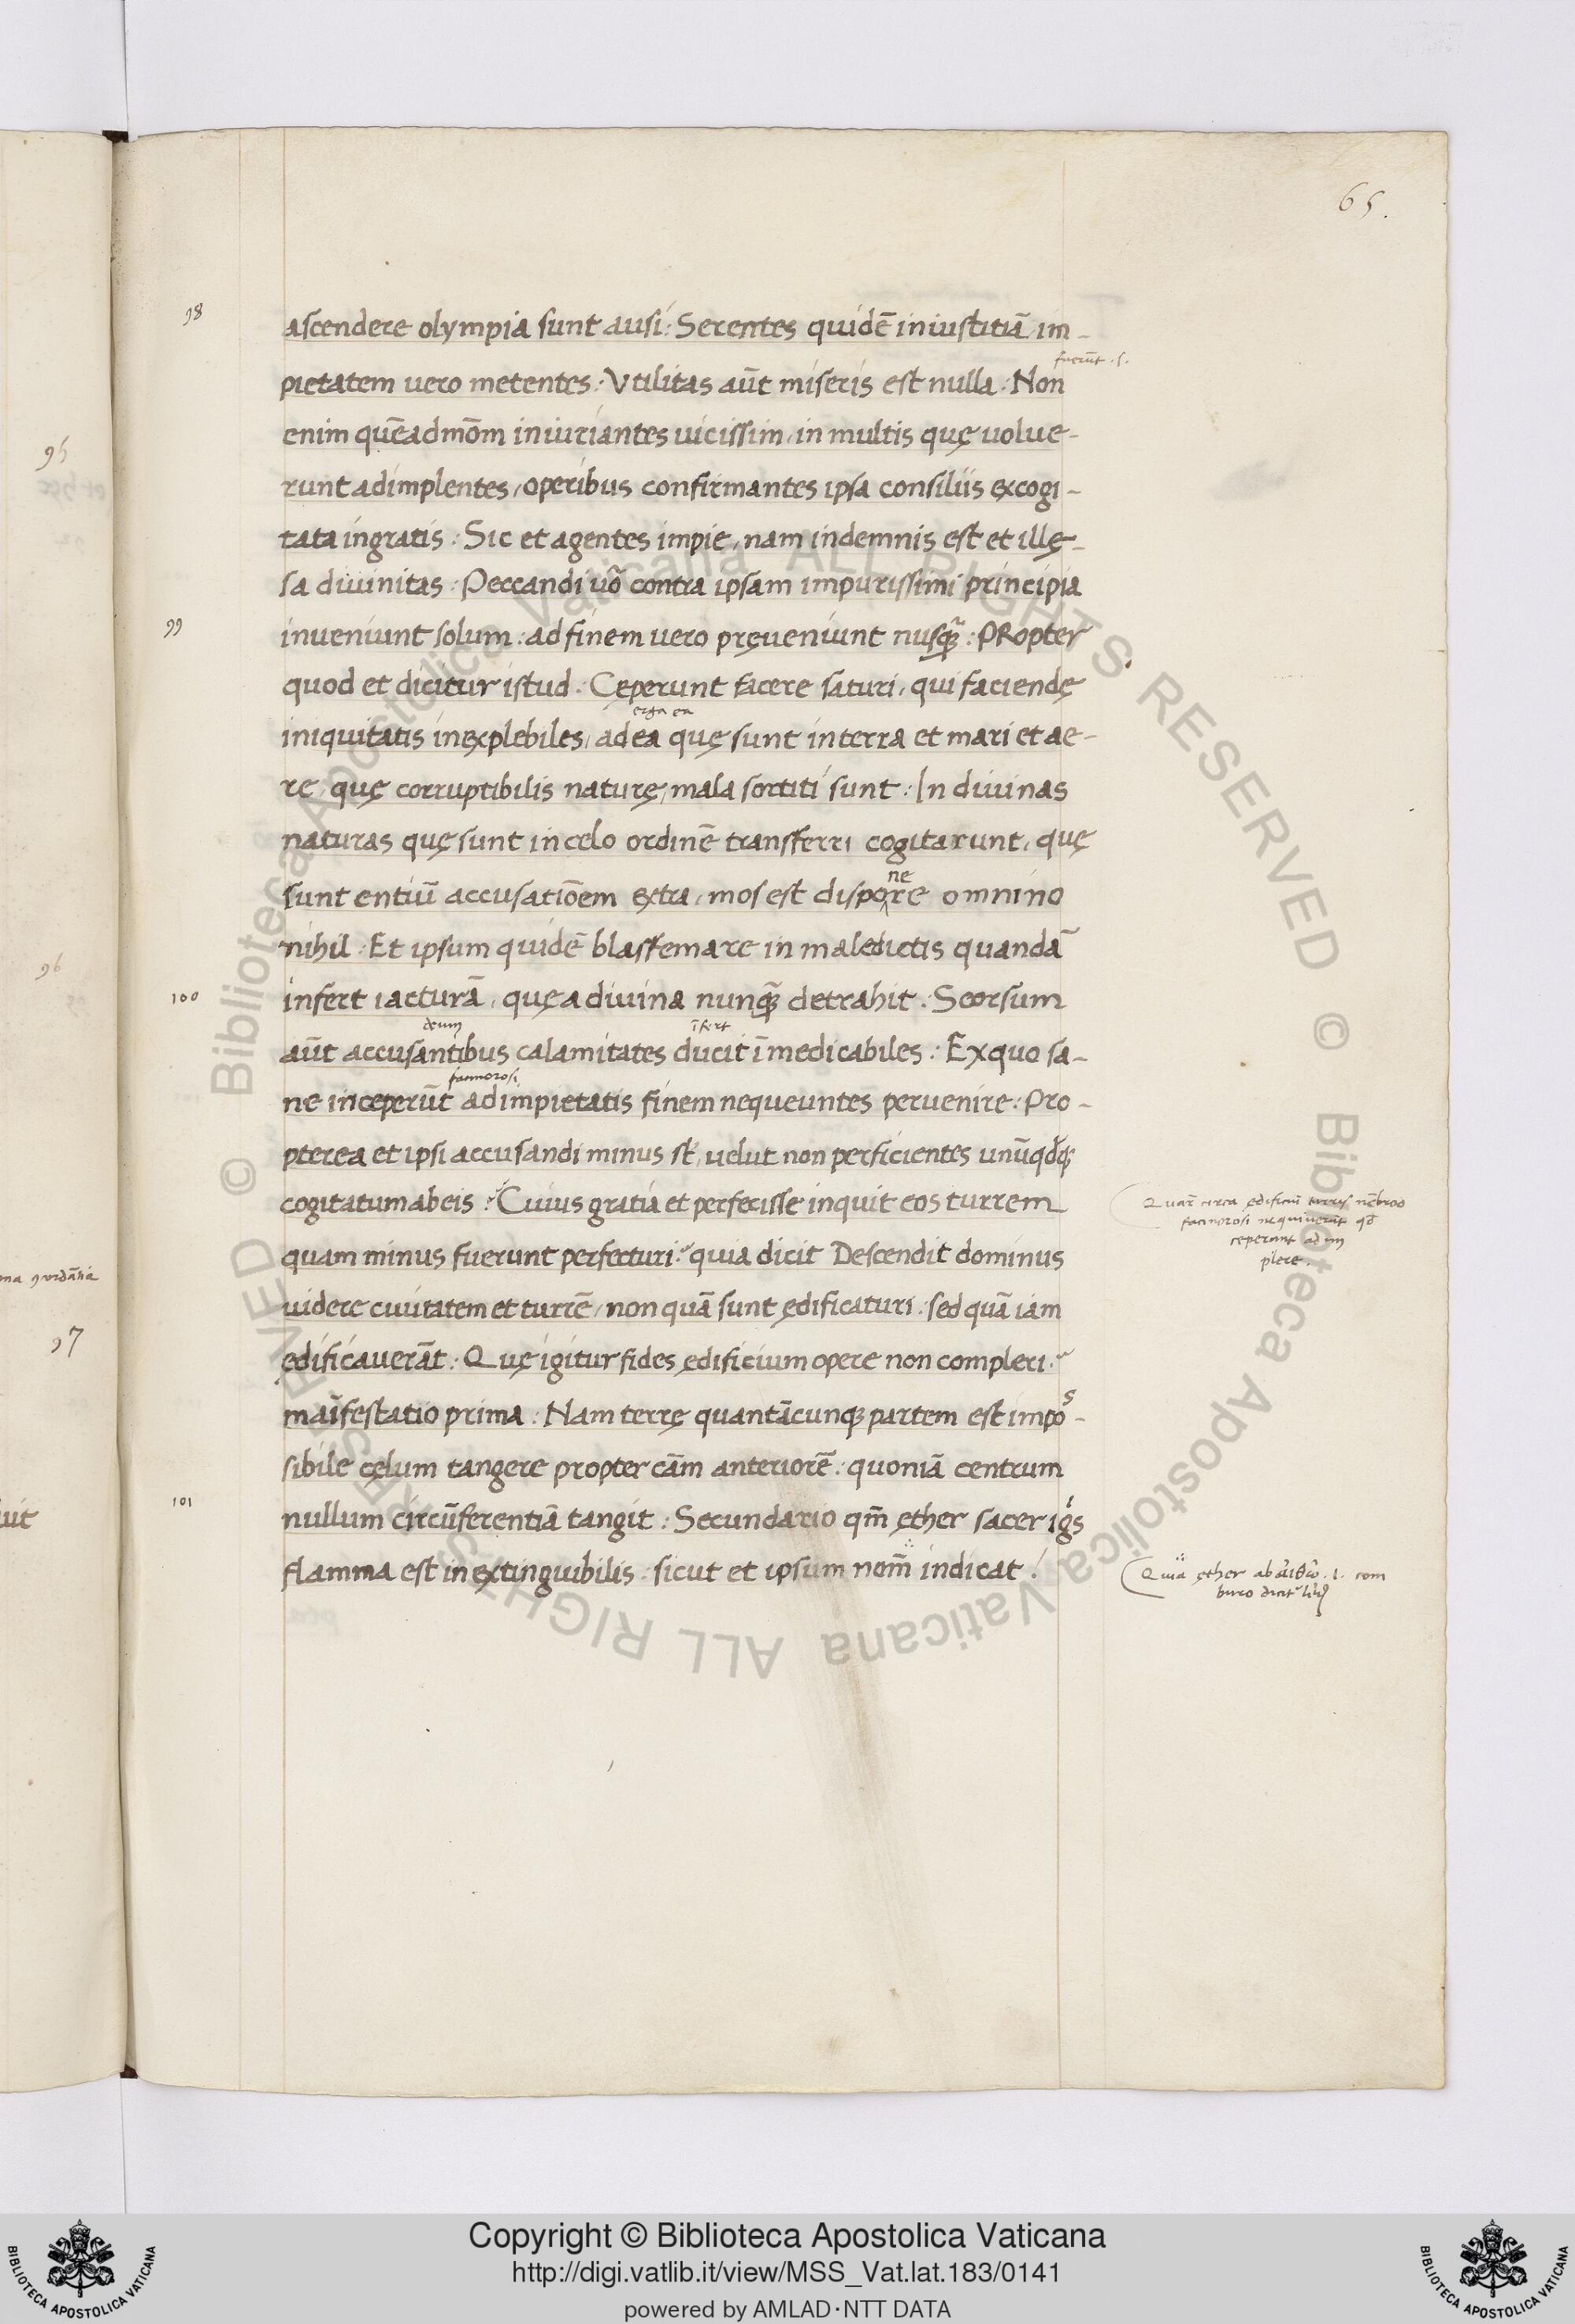 65.
98
ascendere olympia sunt ausi: Serentes quidē iniustitiā im-
fuerūt .s.
pietatem uero metentes: Vtilitas aūt miseris est nulla: Non
enim quēadmōm iniuriantes uicissim, in multis quę uolue-
runt adimplentes, operibus confirmantes ipsa consiliis excogi-
tata ingratis: Sic et agentes impie, nam indemnis est et illę-
sa diuinitas: Peccandi uō contra ipsam impurissimi principia
99
inueniunt solum: ad finem uero pręueniunt nusq̃: PRopter
quod et dicitur istud: Cęperunt facere saturi, qui faciendę
erga ea
iniquitatis inexplebiles, ad ea quę sunt in terra et mari et ae-
re, quę corruptibilis naturę, mala sortiti sunt: In diuinas
naturas quę sunt in celo ordinē transferri cogitarunt, quę
ne
sunt entiū accusatiōem extra, mos est dispore omnino
nihil: Et ipsum quidē blasfemare in maledictis quandā
100
infert iacturā, quę a diuina nunq̃ detrahit: Seorsum
deum
īfert
aūt accusantibus calamitates ducit īmedicabiles: Ex quo sa-
facinorosi
ne inceperūt ad impietatis finem nequeuntes peruenire: Pro-
pterea et ipsi accusandi minus st̄, uelut non perficientes unūqdq;
cogitatum ab eis: Cuius gratia et perfecisse inquit eos turrem
quam minus fuerunt perfecturi: quia dicit Descendit dominus
uidere ciuitatem et turrē, non quā sunt ędificaturi: sed quā iam
ędificauerāt: Quę igitur fides ędificium opere non compleri:
maīfestatio prima: Nam terrę quantācunq; partem est impos-
sibile cęlum tangere propter cām anteriorē: quoniā centrum
101
nullum circūferentiā tangit: Secundario qm̄ ęther sacer igis
flamma est inextinguibilis: sicut et ipsum nom̄ indicat:
Quar̄ circa ędificiū turris nēbrod
facinorosi nequiuerūt qd̄
ceperunt adim
plere.
Quia ęther ab αἴθω .i. com
buro dicit
95
96
97